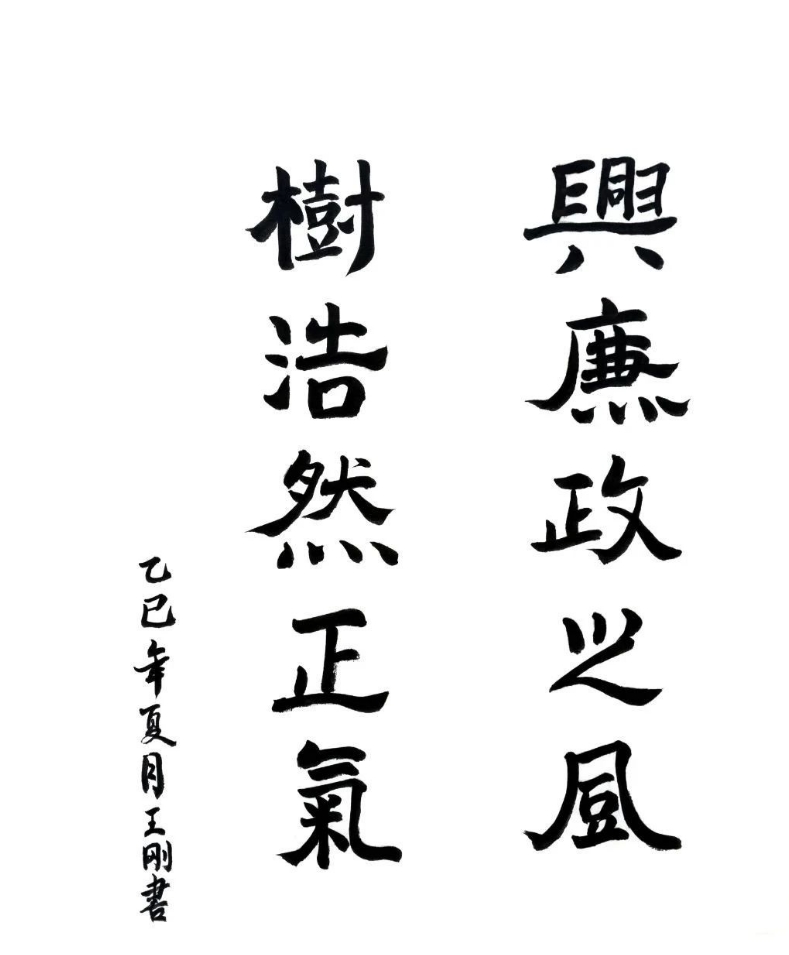 興廉政之風
樹浩然正氣
乙巳年夏月王刚書